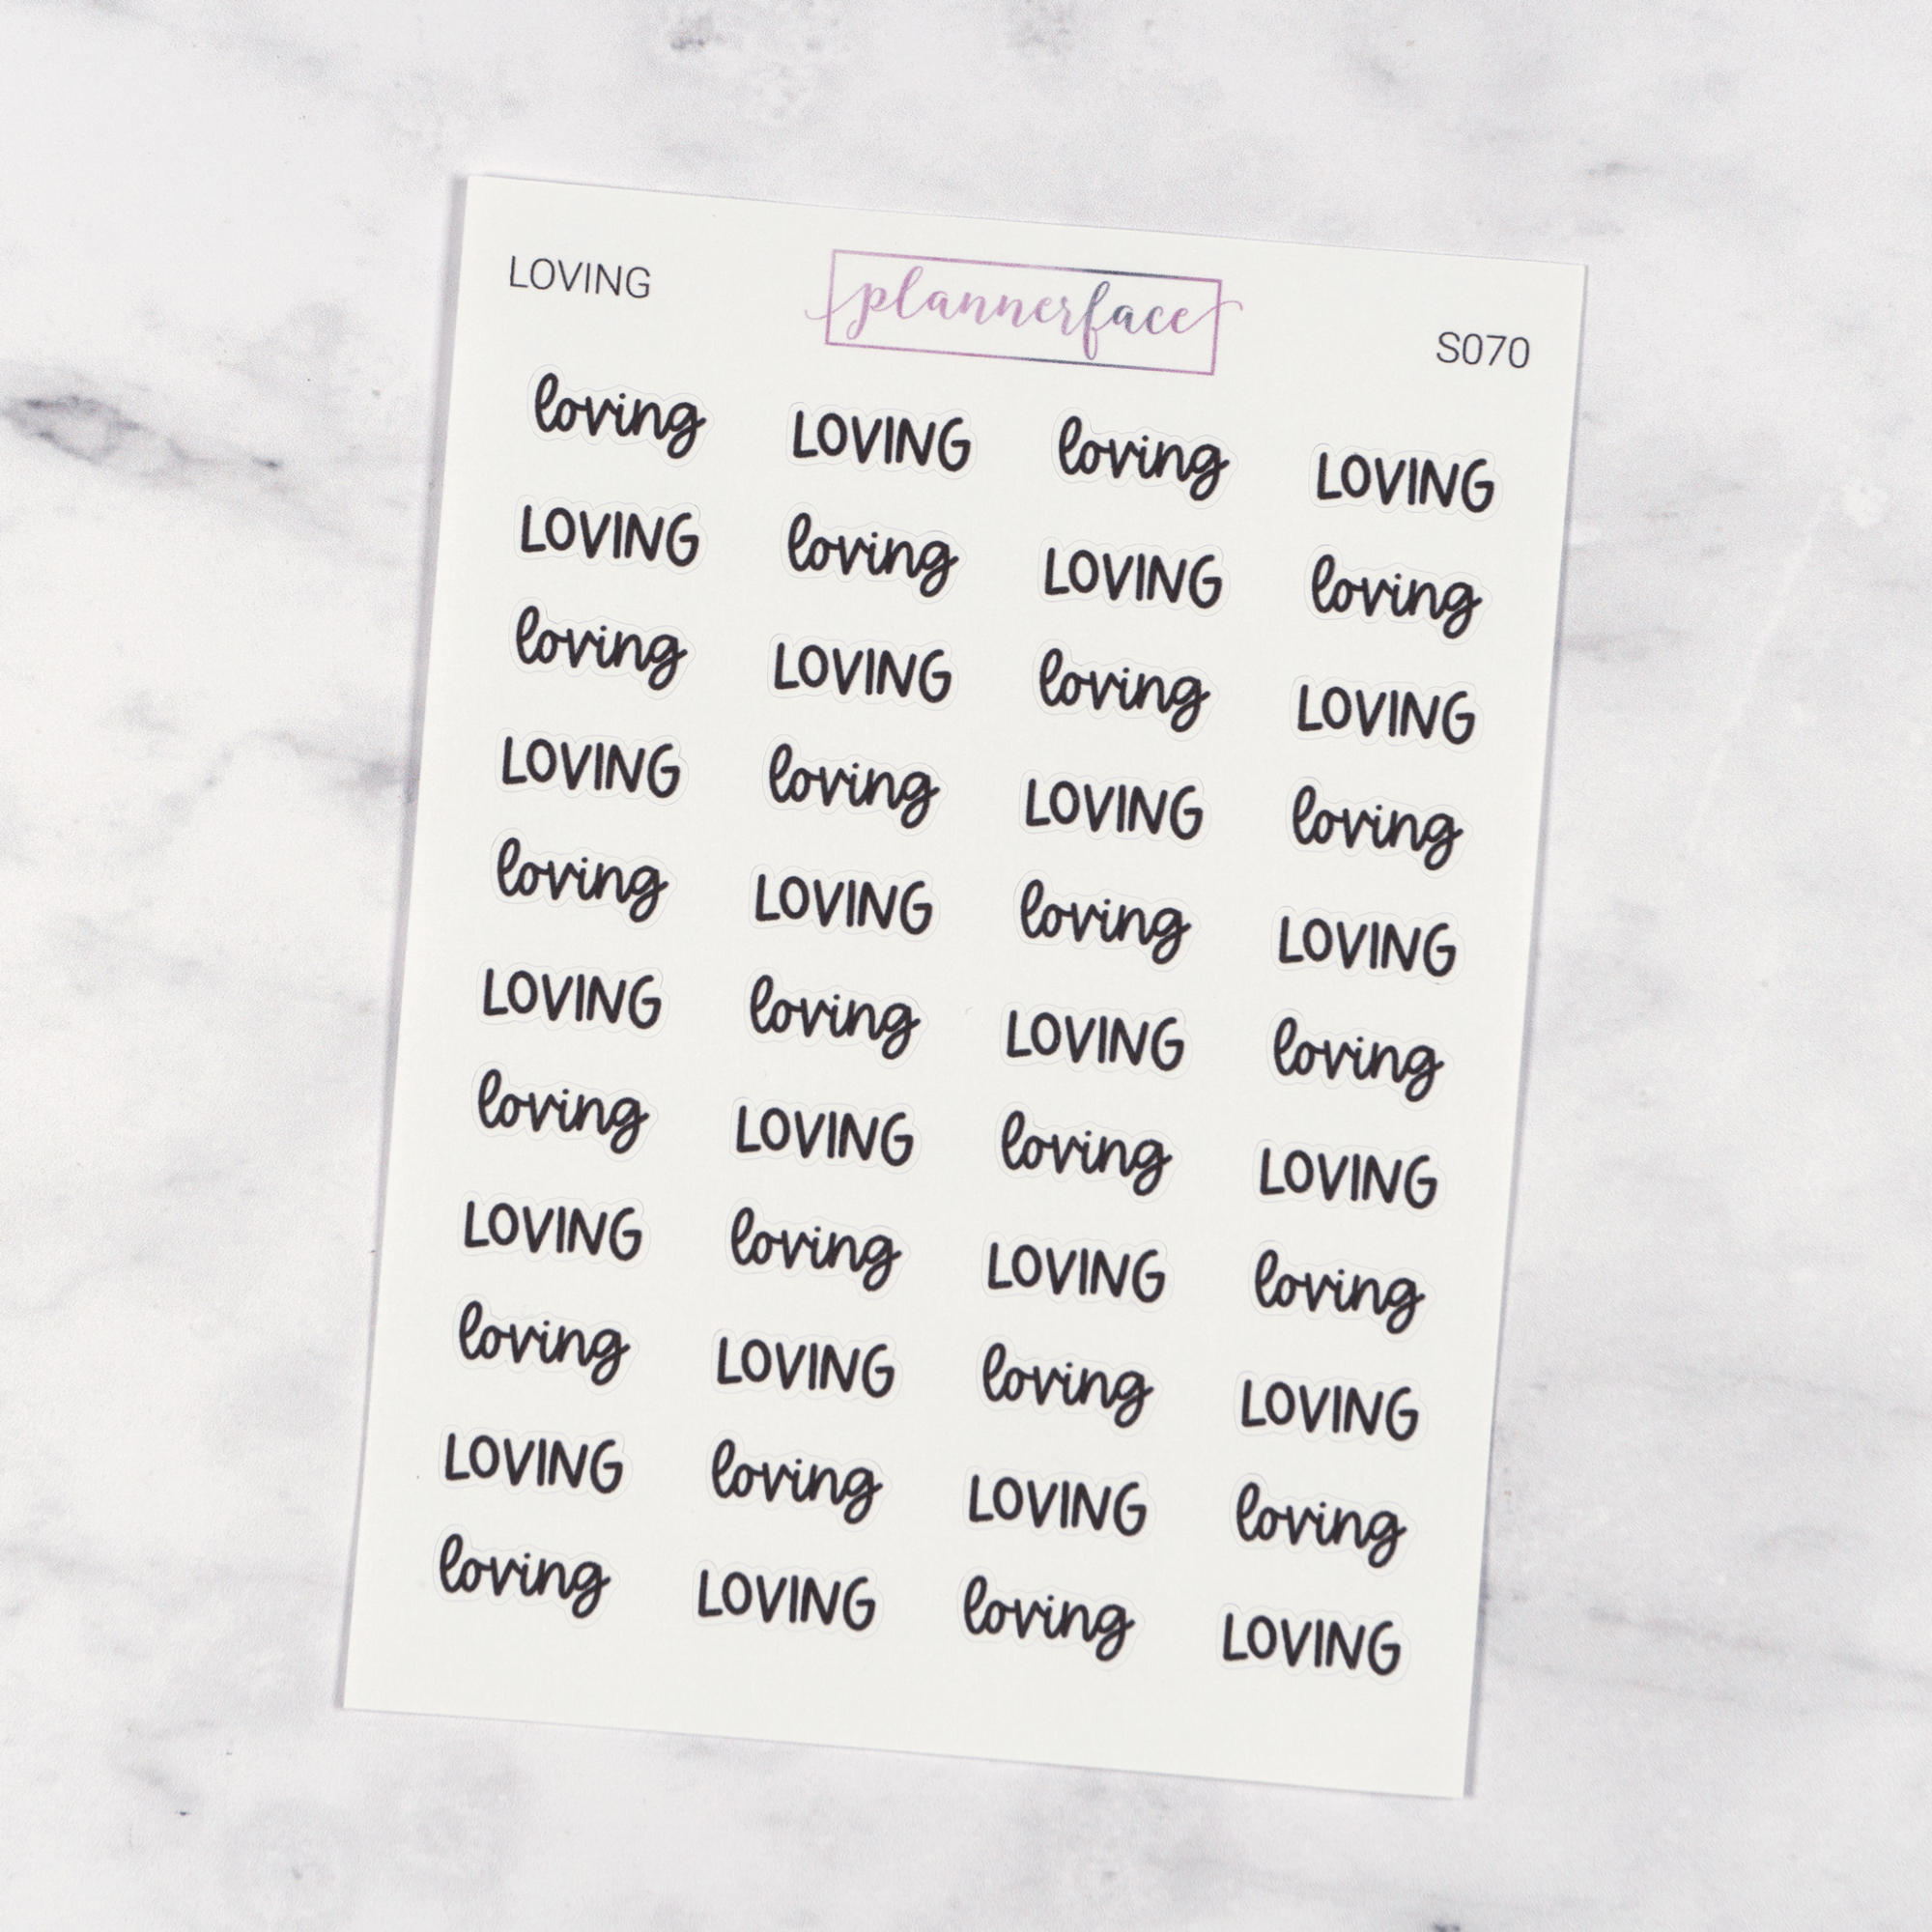 LOVING plannerface S070
loving LOVING loving LOVING
LOVING loving LOVING loving
loving LOVING loving LOVING
LOVING loving LOVING loving
loving LOVING loving LOVING
LOVING loving LOVING loving
loving LOVING loving LOVING
LOVING loving LOVING loving
loving LOVING loving LOVING
LOVING loving LOVING loving
loving LOVING loving LOVING